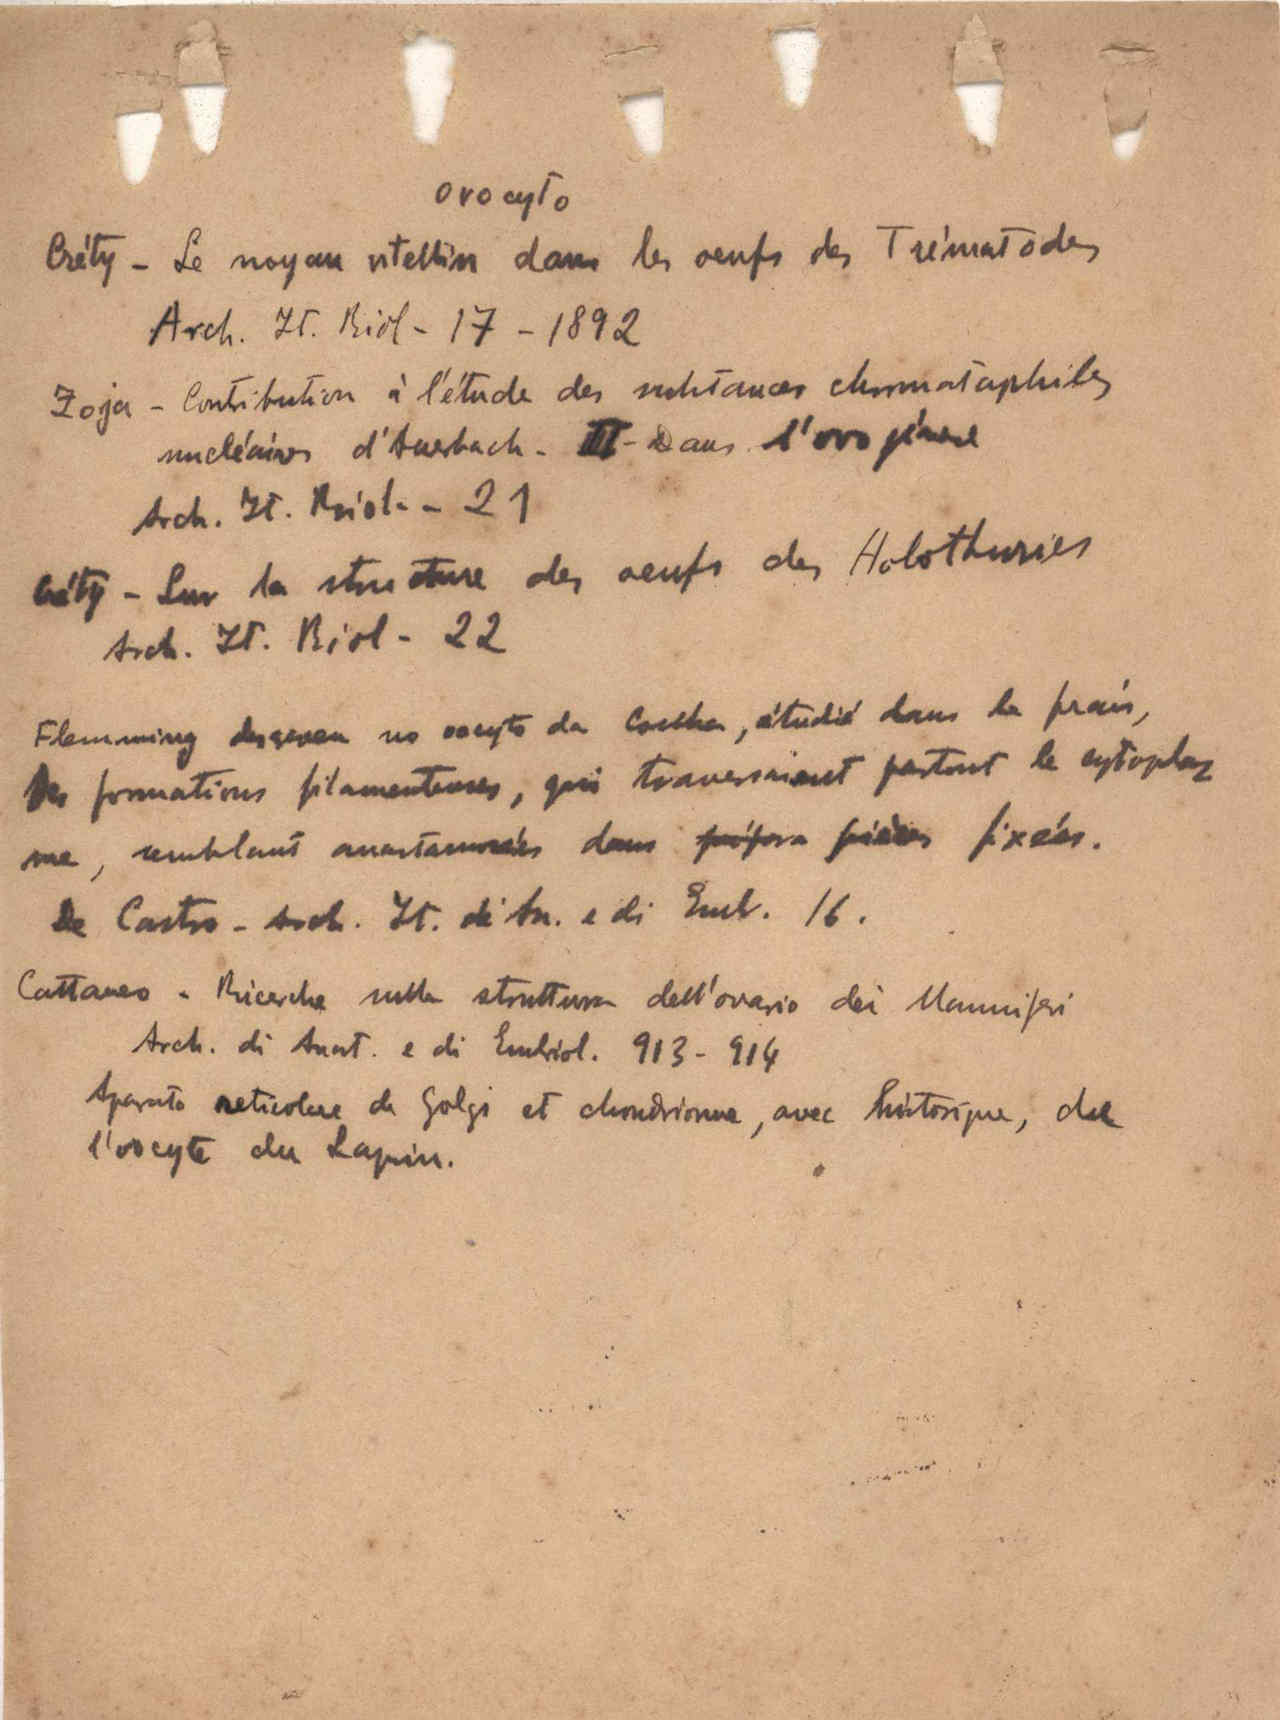 ovocyto
Créty - Le noyau vitellin dans les oeufs des Trématodes
Arch. It. Biol - 17 - 1892
Zoja - Contribution à l'étude des substances chromatophiles
nucléaires d'Auerbach - III - Dans l'ovogénese
Arch. It. Biol. - 21
Créty - Sur la structure des oeufs des Holothuries
Arch. It. Biol - 22
Flemming descreveu no oocyto da coelha, étudié dans le frais,
des formations filamenteuses, qui traversaient partout le cytoplas
me, semblant anastomosées dans pièces fixées.
De Castro - Arch. It. di An. e di Emb. 16.
Cattaneo - Ricerche sulla struttura dell'ovario dei Mammiferi
Arch. di Anat. e di Embriol. 913 - 914
Aparato reticolare de Golgi et chondriome, avec historique, de
l'oocyte du Lapin.